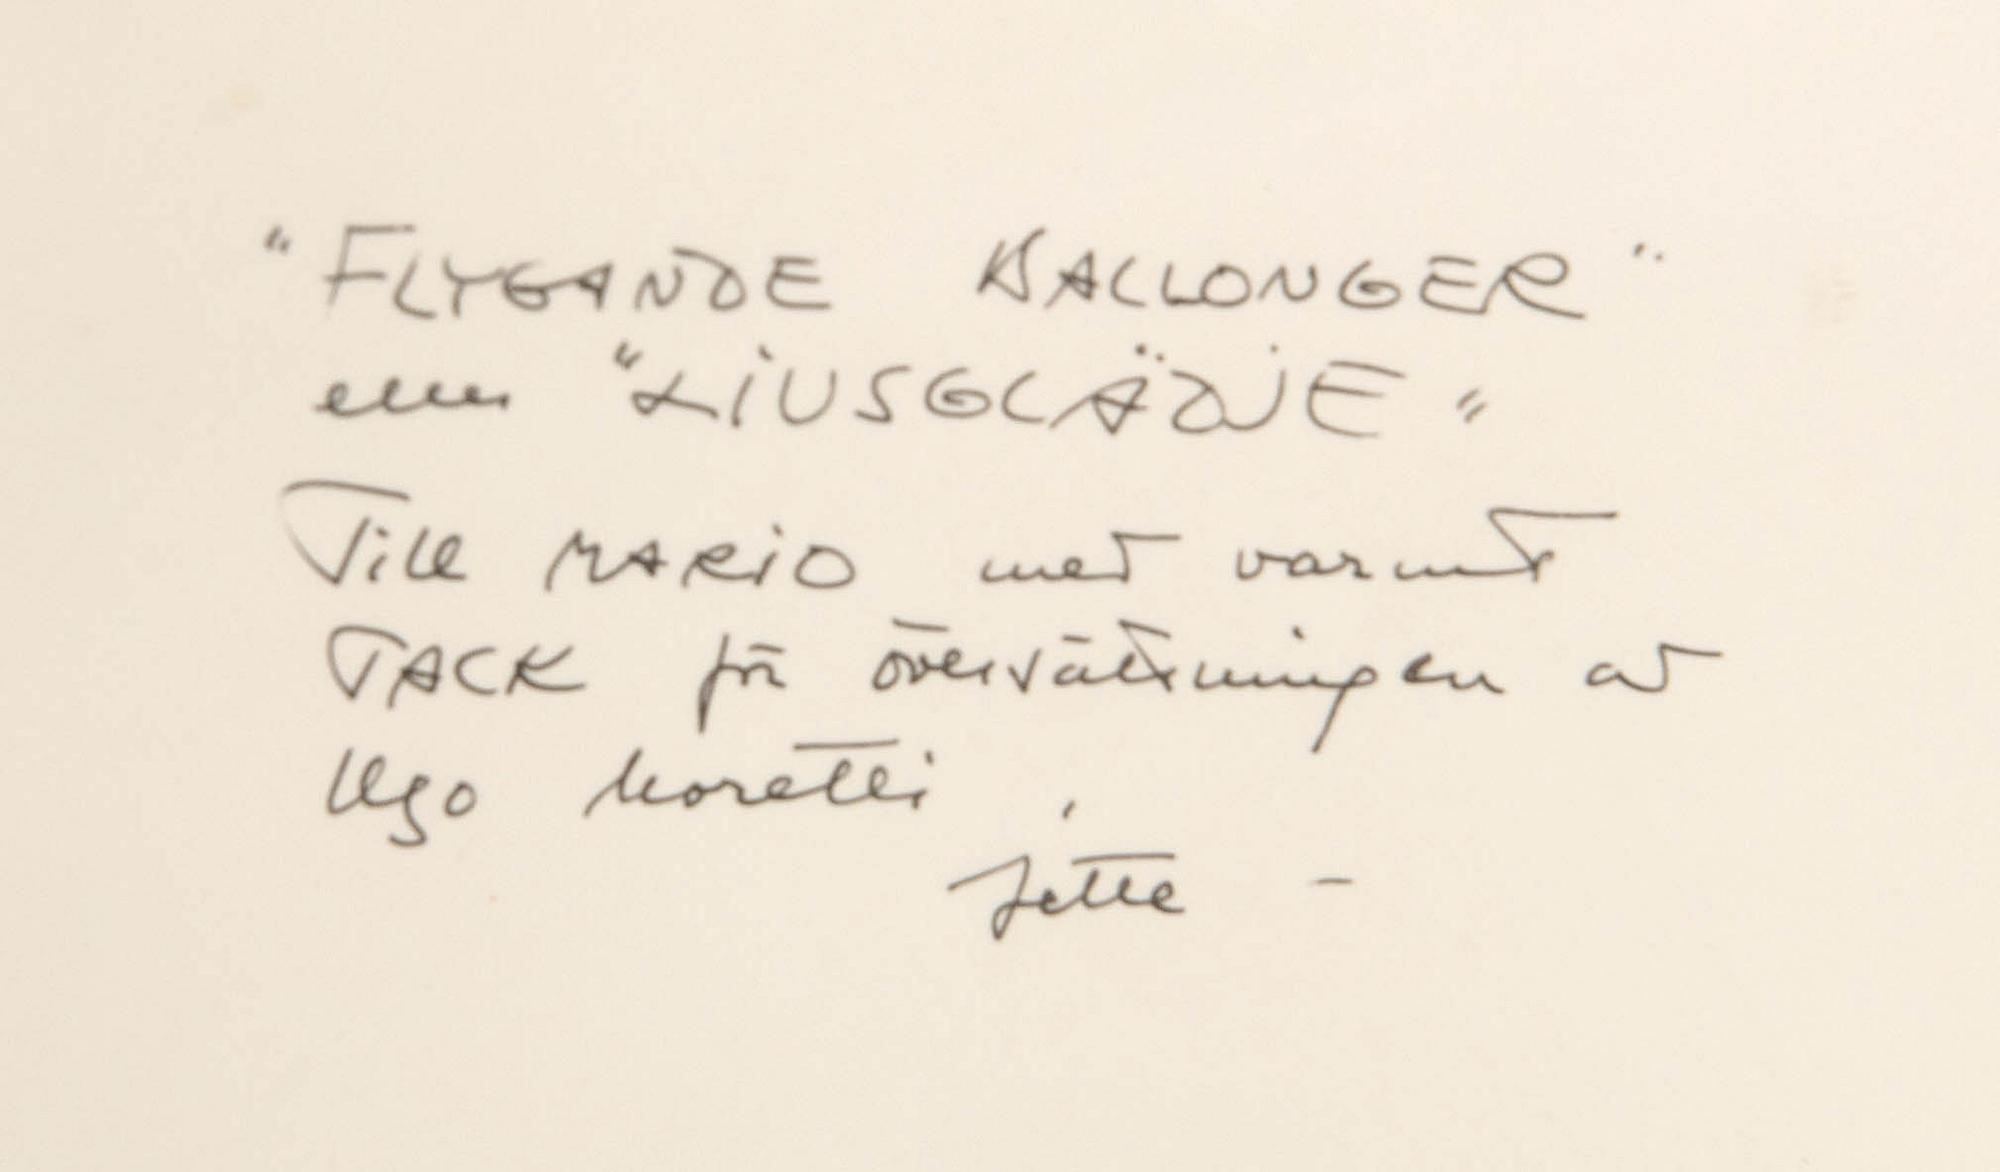 "FLYGANDE BALLONGER"
eller "LiUSGLÄDJE"
Till MARiO med varmt
TACK för översättningen av
Ugo Moretti,
Jette -